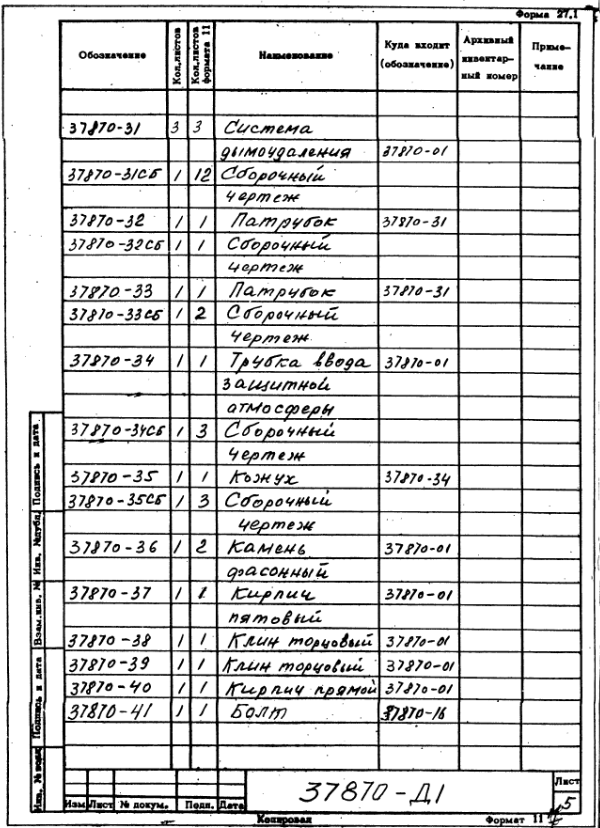 Форма 27.1
Обозначение Кол.листов Кол.листов формата 11 Наименование Куда входит (обозначение) Архивный инвентарный номер Примечание
37870-31 3 3 Система
дымоудаления 37870-01
37870-31СБ 1 12 Сборочный
чертеж
37870-32 1 1 Патрубок 37870-31
37870-32СБ 1 1 Сборочный
чертеж
37870-33 1 1 Патрубок 37870-31
37870-33СБ 1 2 Сборочный
чертеж
37870-34 1 1 Трубка ввода 37870-01
защитной
атмосферы
37870-34СБ 1 3 Сборочный
чертеж
37870-35 1 1 Кожух 37870-34
37870-35СБ 1 3 Сборочный
чертеж
37870-36 1 2 Камень 37870-01
фасонный
37870-37 1 1 Кирпич 37870-01
пятовый
37870-38 1 1 Клин торцовый 37870-01
37870-39 1 1 Клин торцовый 37870-01
37870-40 1 1 Кирпич прямой 37870-01
37870-41 1 1 Болт 37870-16
Подпись и дата
Инв. №дубл.
Взам.инв. №
Подпись и дата
Инв. №подл.
37870-Д1
Лист
5
Изм Лист № докум. Подп. Дата
Копировал Формат 11